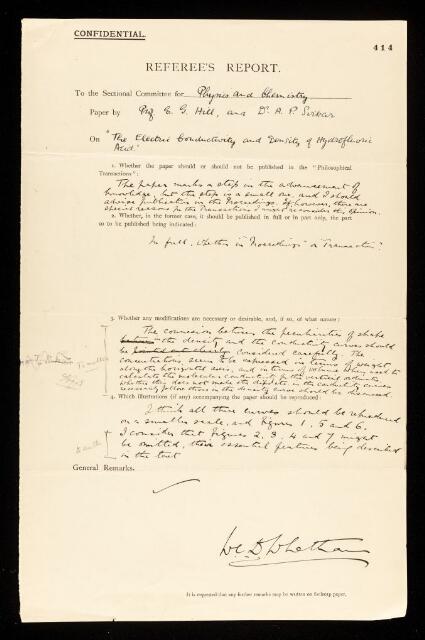 CONFIDENTIAL.
414
REFEREE'S REPORT.
To the Sectional Committee for Physics and Chemistry
Paper by Prof E. G. Hill, and Dr. A. P. Sirkar
On "The Electric Conductivity and Density of Hydrofluoric
Acid."
1. Whether the paper should or should not be published in the "Philosophical
Transactions":
The paper marks a step in the advancement of
knowledge, but the step is a small one, and I should
advise publication in the Proceedings. If however, there are
special reasons for the Transactions I would reconsider this opinion.
2. Whether, in the former case, it should be published in full or in part only, the part
so to be published being indicated:
In full, whether in "Proceedings" or "Transactions".
3. Whether any modifications are necessary or desirable, and, if so, of what nature:
The connexion between the peculiarities of shape
the density and the conductivity curves should
be considered carefully. The
concentrations seem to be expressed in terms of weight
along the horizontal axes, and in terms of volume when used to
calculate the molecular conductivity for the vertical ordinates.
Whether this does not make the in the conductivity curves
necessarily follow those in the density curve should be discussed.
4. Which illustrations (if any) accompanying the paper should be reproduced:
I think all three curves should be reproduced
on a smaller scale, and figures 1, 5 and 6.
I consider that figures 2, 3, 4 and 7 might
be omitted, their essential features being described
in the text
General Remarks.
W. C. D. Whetham
It is requested that any further remarks may be written on foolscap paper.